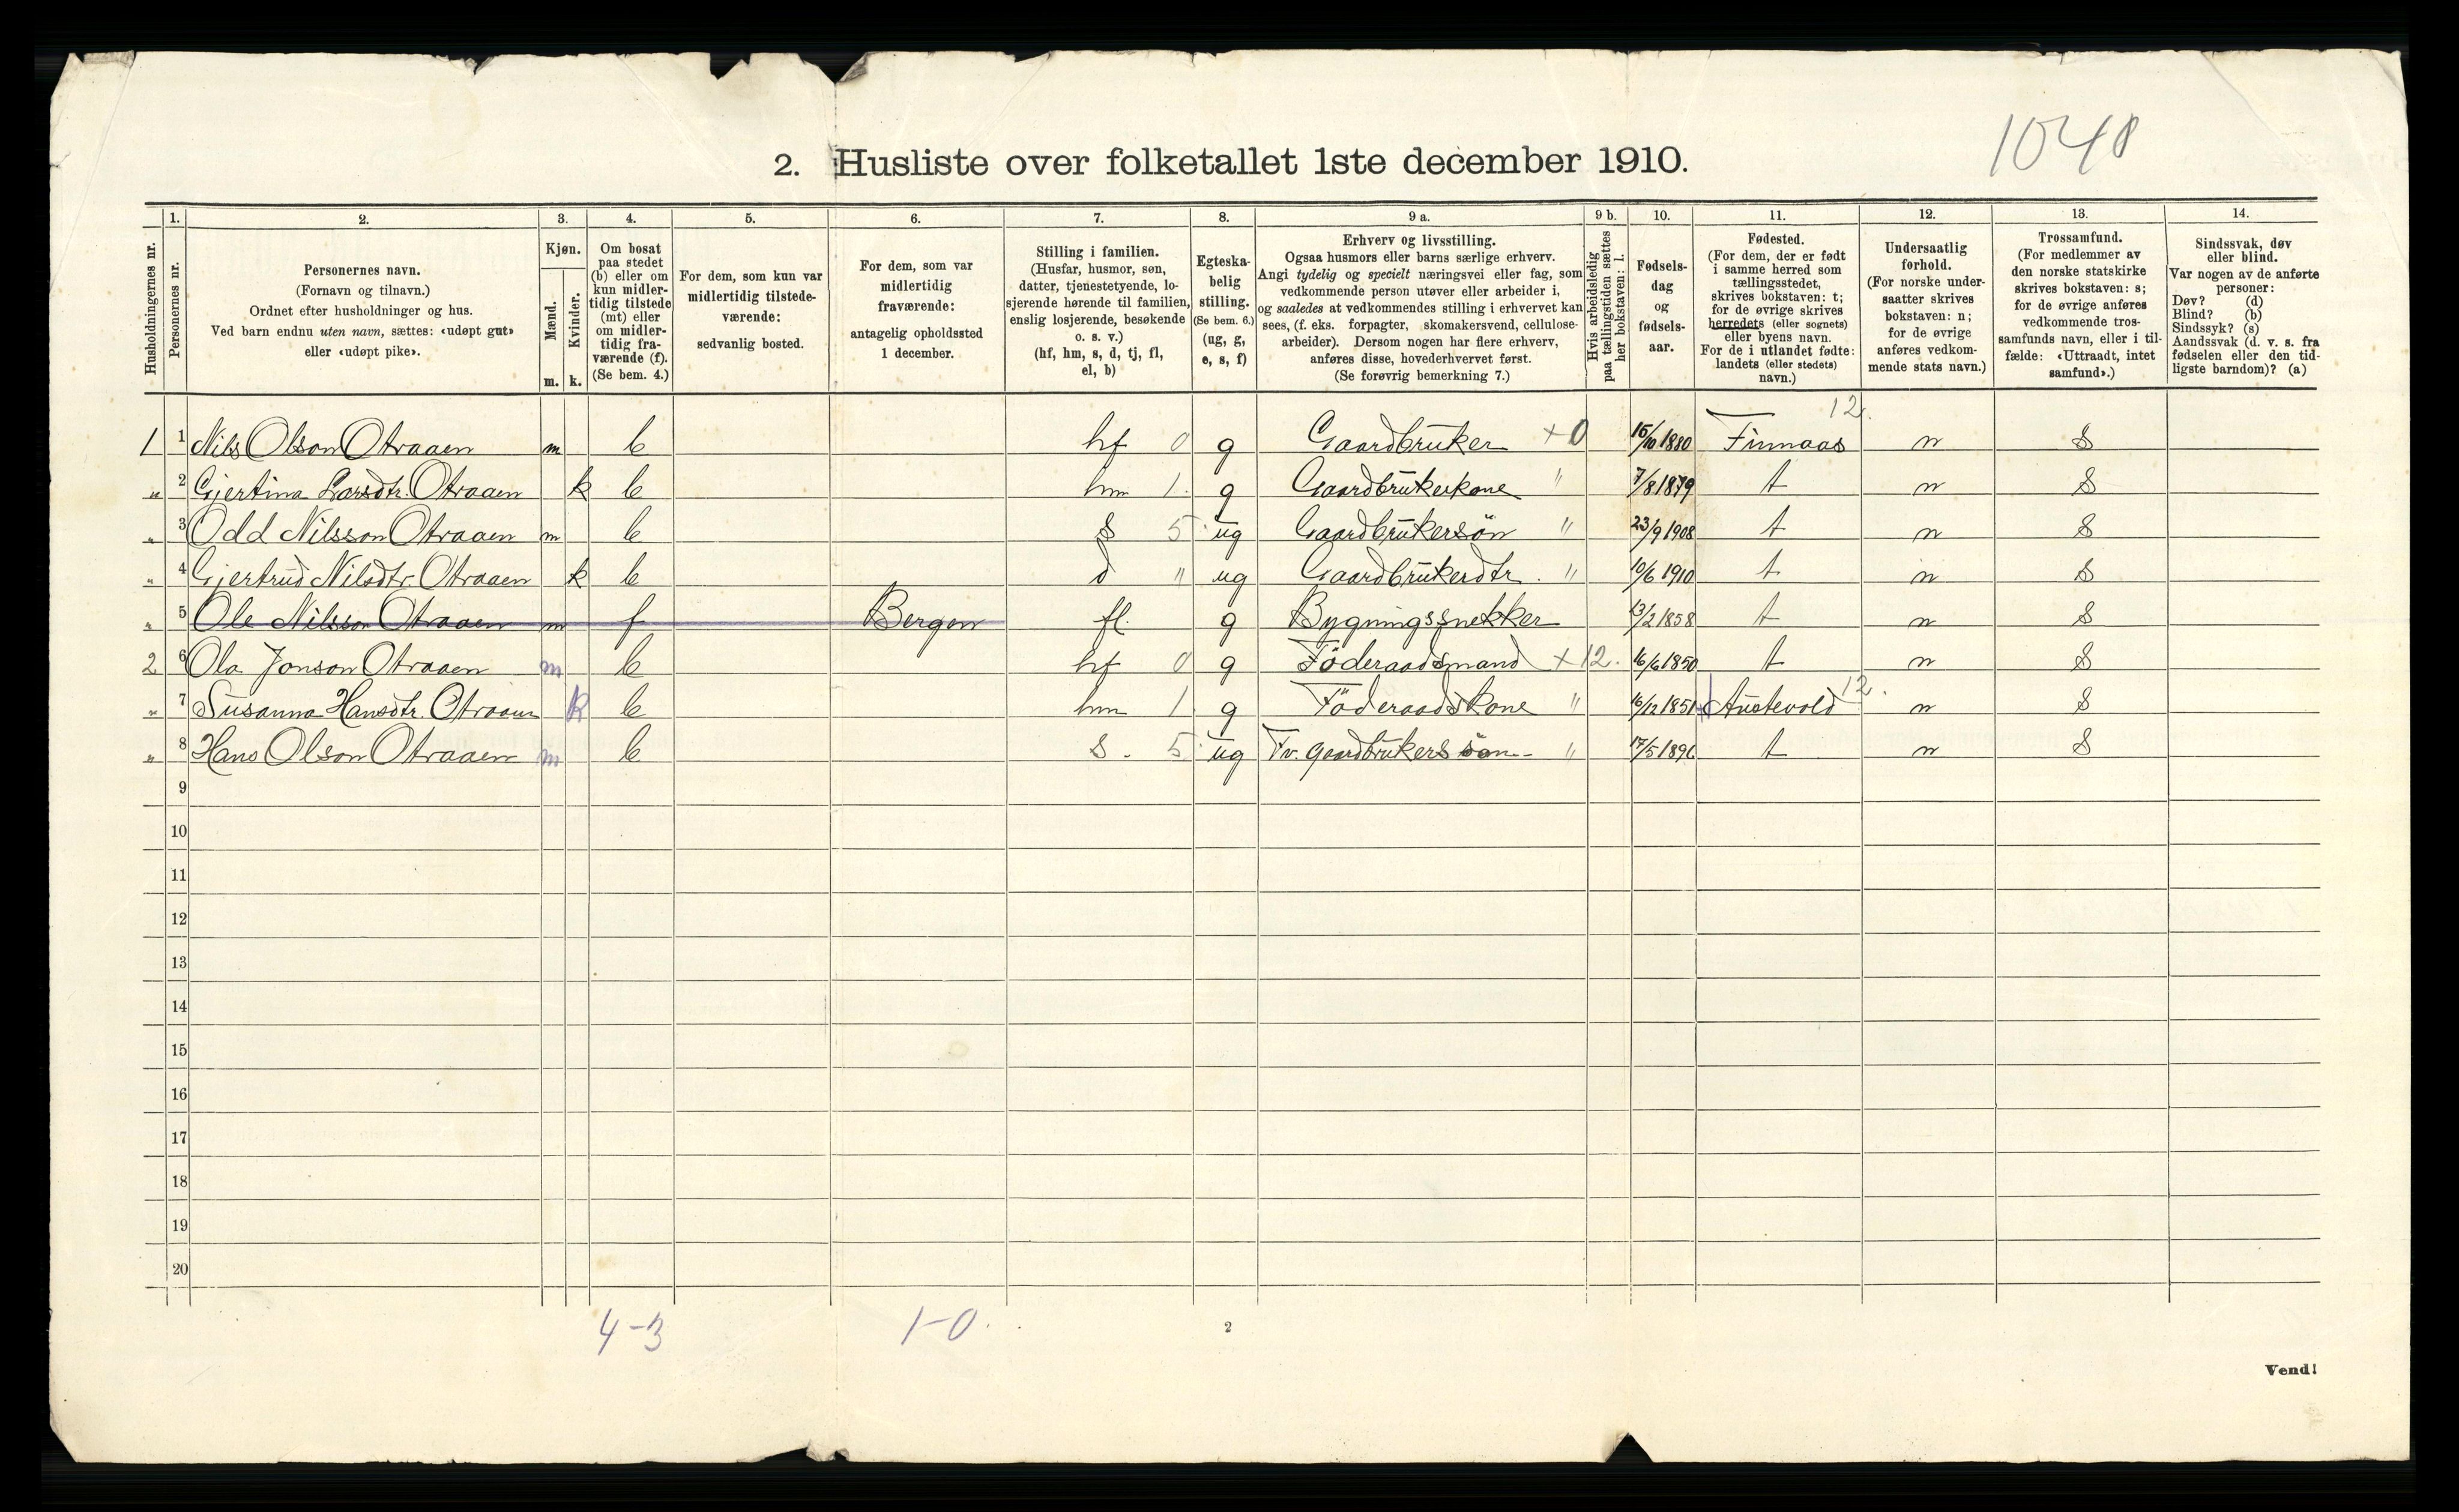 1048
2. Husliste over folketallet 1ste december 1910.
Husholdningernes nr.
1.
Personernes nr.
2.
Personernes navn.
(Fornavn og tilnavn.)
Ordnet efter husholdninger og hus.
Ved barn endnu uten navn, sættes: «udøpt gut»
eller «udøpt pike».
3.
Kjøn.
Mænd. Kvinder.
m. k.
4.
Om bosat
paa stedet
(b) eller om
kun midler-
tidig tilstede
(mt) eller
om midler-
tidig fra-
værende (f).
(Se bem. 4.)
5.
For dem, som kun var
midlertidig tilstede-
værende:
sedvanlig bosted.
6.
For dem, som var
midlertidig
fraværende:
antagelig opholdssted
1 december.
7.
Stilling i familien.
(Husfar, husmor, søn,
datter, tjenestetyende, lo-
sjerende hørende til familien,
enslig losjerende, besøkende
o. s. v.)
(hf, hm, s, d, tj, fl,
el, b)
8.
Egteska-
belig
stilling.
(Se bem. 6.)
(ug, g,
e, s, f)
9 a.
Erhverv og livsstilling.
Ogsaa husmors eller barns særlige erhverv.
Angi tydelig og specielt næringsvei eller fag, som
vedkommende person utøver eller arbeider i,
og saaledes at vedkommendes stilling i erhvervet kan
sees, (f. eks. forpagter, skomakersvend, cellulose-
arbeider). Dersom nogen har flere erhverv,
anføres disse, hovederhvervet først.
(Se forøvrig bemerkning 7.)
9 b.
Hvis arbeidsledig
paa tællingstiden sættes
her bokstaven: l.
10.
Fødsels-
dag
og
fødsels-
aar.
11.
Fødested.
(For dem, der er født
i samme herred som
tællingsstedet,
skrives bokstaven: t;
for de øvrige skrives
herredets (eller sognets)
eller byens navn.
For de i utlandet fødte:
landets (eller stedets)
navn.)
12.
Undersaatlig
forhold.
(For norske under-
saatter skrives
bokstaven: n;
for de øvrige
anføres vedkom-
mende stats navn.)
13.
Trossamfund.
(For medlemmer av
den norske statskirke
skrives bokstaven: s;
for de øvrige anføres
vedkommende tros-
samfunds navn, eller i til-
fælde: «Uttraadt, intet
samfund».)
14.
Sindssvak, døv
eller blind.
Var nogen av de anførte
personer:
Døv? (d)
Blind? (b)
Sindssyk? (s)
Aandssvak (d. v. s. fra
fødselen eller den tid-
ligste barndom)? (a)
12.
1 1 Nils Olson Otraaen m b hf 0 g Gaardbruker + 0 15/10 1880 Finnaas n S
" 2 Gjertina Larsdtr. Otraaen k b hm 1. g Gaardbrukerkone " 7/8 1879 t n S
" 3 Odd Nilsson Otraaen m b S 5 ug Gaardbrukersön " 23/9 1908 t n S
" 4 Gjertrud Nilsdtr. Otraaen k b d " ug Gaardbrukerdtr. " 10/6 1910 t n S
" 5 Ole Nilsson Otraaen m f Bergen fl. g Bygningssnekker 13/2 1858 t n S
2 6 Ola Jonson Otraaen m b hf 0 g Föderaadsmand + 12. 16/6 1850 t n S
" 7 Susanna Hansdtr. Otraaen k b hm 1 g Föderaadskone " 16/12 1851 Austevold 12. n S
" 8 Hans Olson Otraaen m b S. 5 ug Fv. gaardbrukers sön " 17/5 1896 t n S
9
10
11
12
13
14
15
16
17
18
19
20
4-3 1-0.
2
Vend!